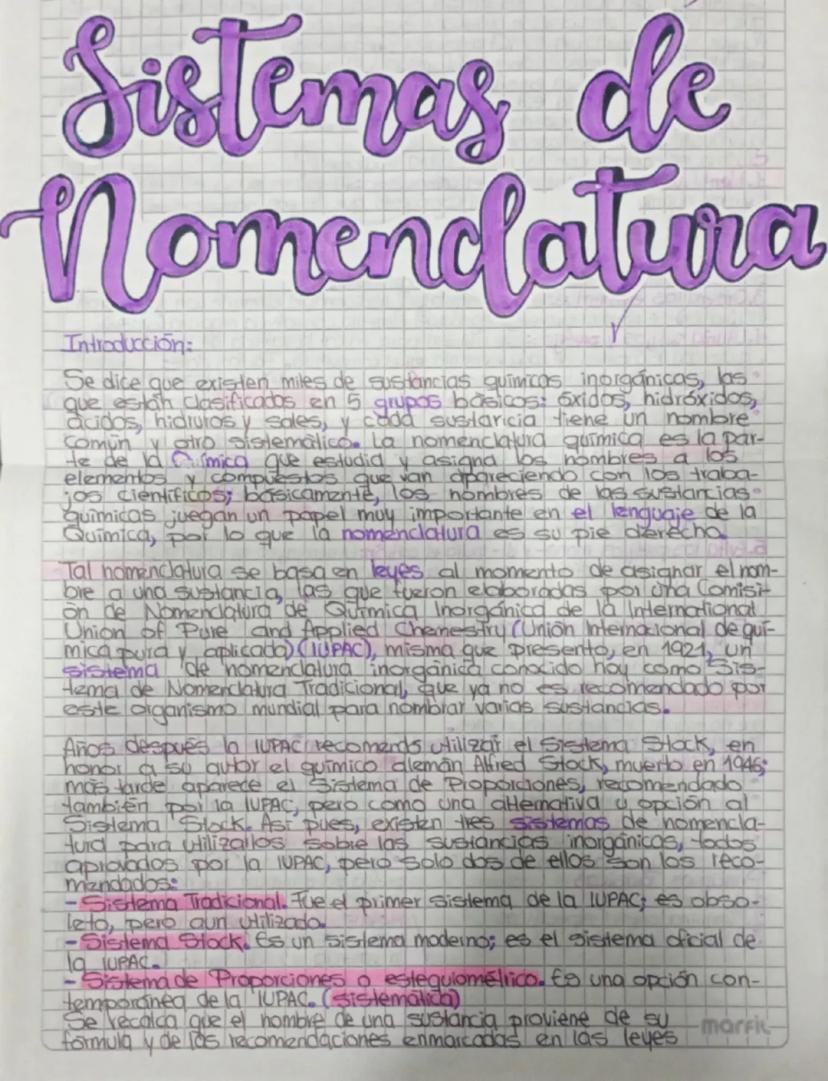 Sistemas de
Nomenclatura
Introducción:
Se dice que existen miles de sustancias químicas inorgánicas, las
que están clasificados en 5 grupos básicos: óxidos, hidróxidos,
ácidos, hidruros y sales, y cada sustancia tiene un nombre
común y otro sistemático. La nomenclatura química es la par-
te de la Química que estudia y asigna los nombres a los
elementos y compuestos que van apareciendo con los traba-
jos científicos; básicamente, los nombres de las sustancias
químicas juegan un papel muy importante en el lenguaje de la
Química, por lo que la nomenclatura es su pie derecho.
Tal nomenclatura se basa en leyes al momento de asignar el nom-
bre a una sustancia, las que fueron elaboradas por una Comisi-
ón de Nomenclatura de Química Inorgánica de la International
Union of Pure and Applied Chemestry (Unión Internacional de quí-
mica pura y aplicada) (IUPAC), misma que presento, en 1921, un
sistema de nomenclatura inorgánica conocido hoy como Sis-
tema de Nomenclatura Tradicional, que ya no es recomendado por
este organismo mundial para nombrar varias sustancias.
Años después la IUPAC recomendó utilizar el Sistema Stock, en
honor a su autor el químico alemán Alfred Stock, muerto en 1946;
más tarde aparece el Sistema de Proporciones, recomendado
también por la IUPAC, pero como una alternativa u opción al
Sistema Stock. Así pues, existen tres sistemas de nomencla-
tura para utilizarlos sobre las sustancias inorgánicas, todos
aprovados por la IUPAC, pero solo dos de ellos son los reco-
mendados:
- Sistema Tradicional. Fue el primer sistema de la IUPAC; es obso-
leto, pero aun utilizado.
- Sistema Stock. Es un sistema moderno; es el sistema oficial de
la IUPAC.
- Sistema de Proporciones o estequiométrico. Es una opción con-
temporánea de la IUPAC. (sistemática)
Se recalca que el nombre de una sustancia proviene de su
fórmula y de las recomendaciones enmarcadas en las leyes
marfil